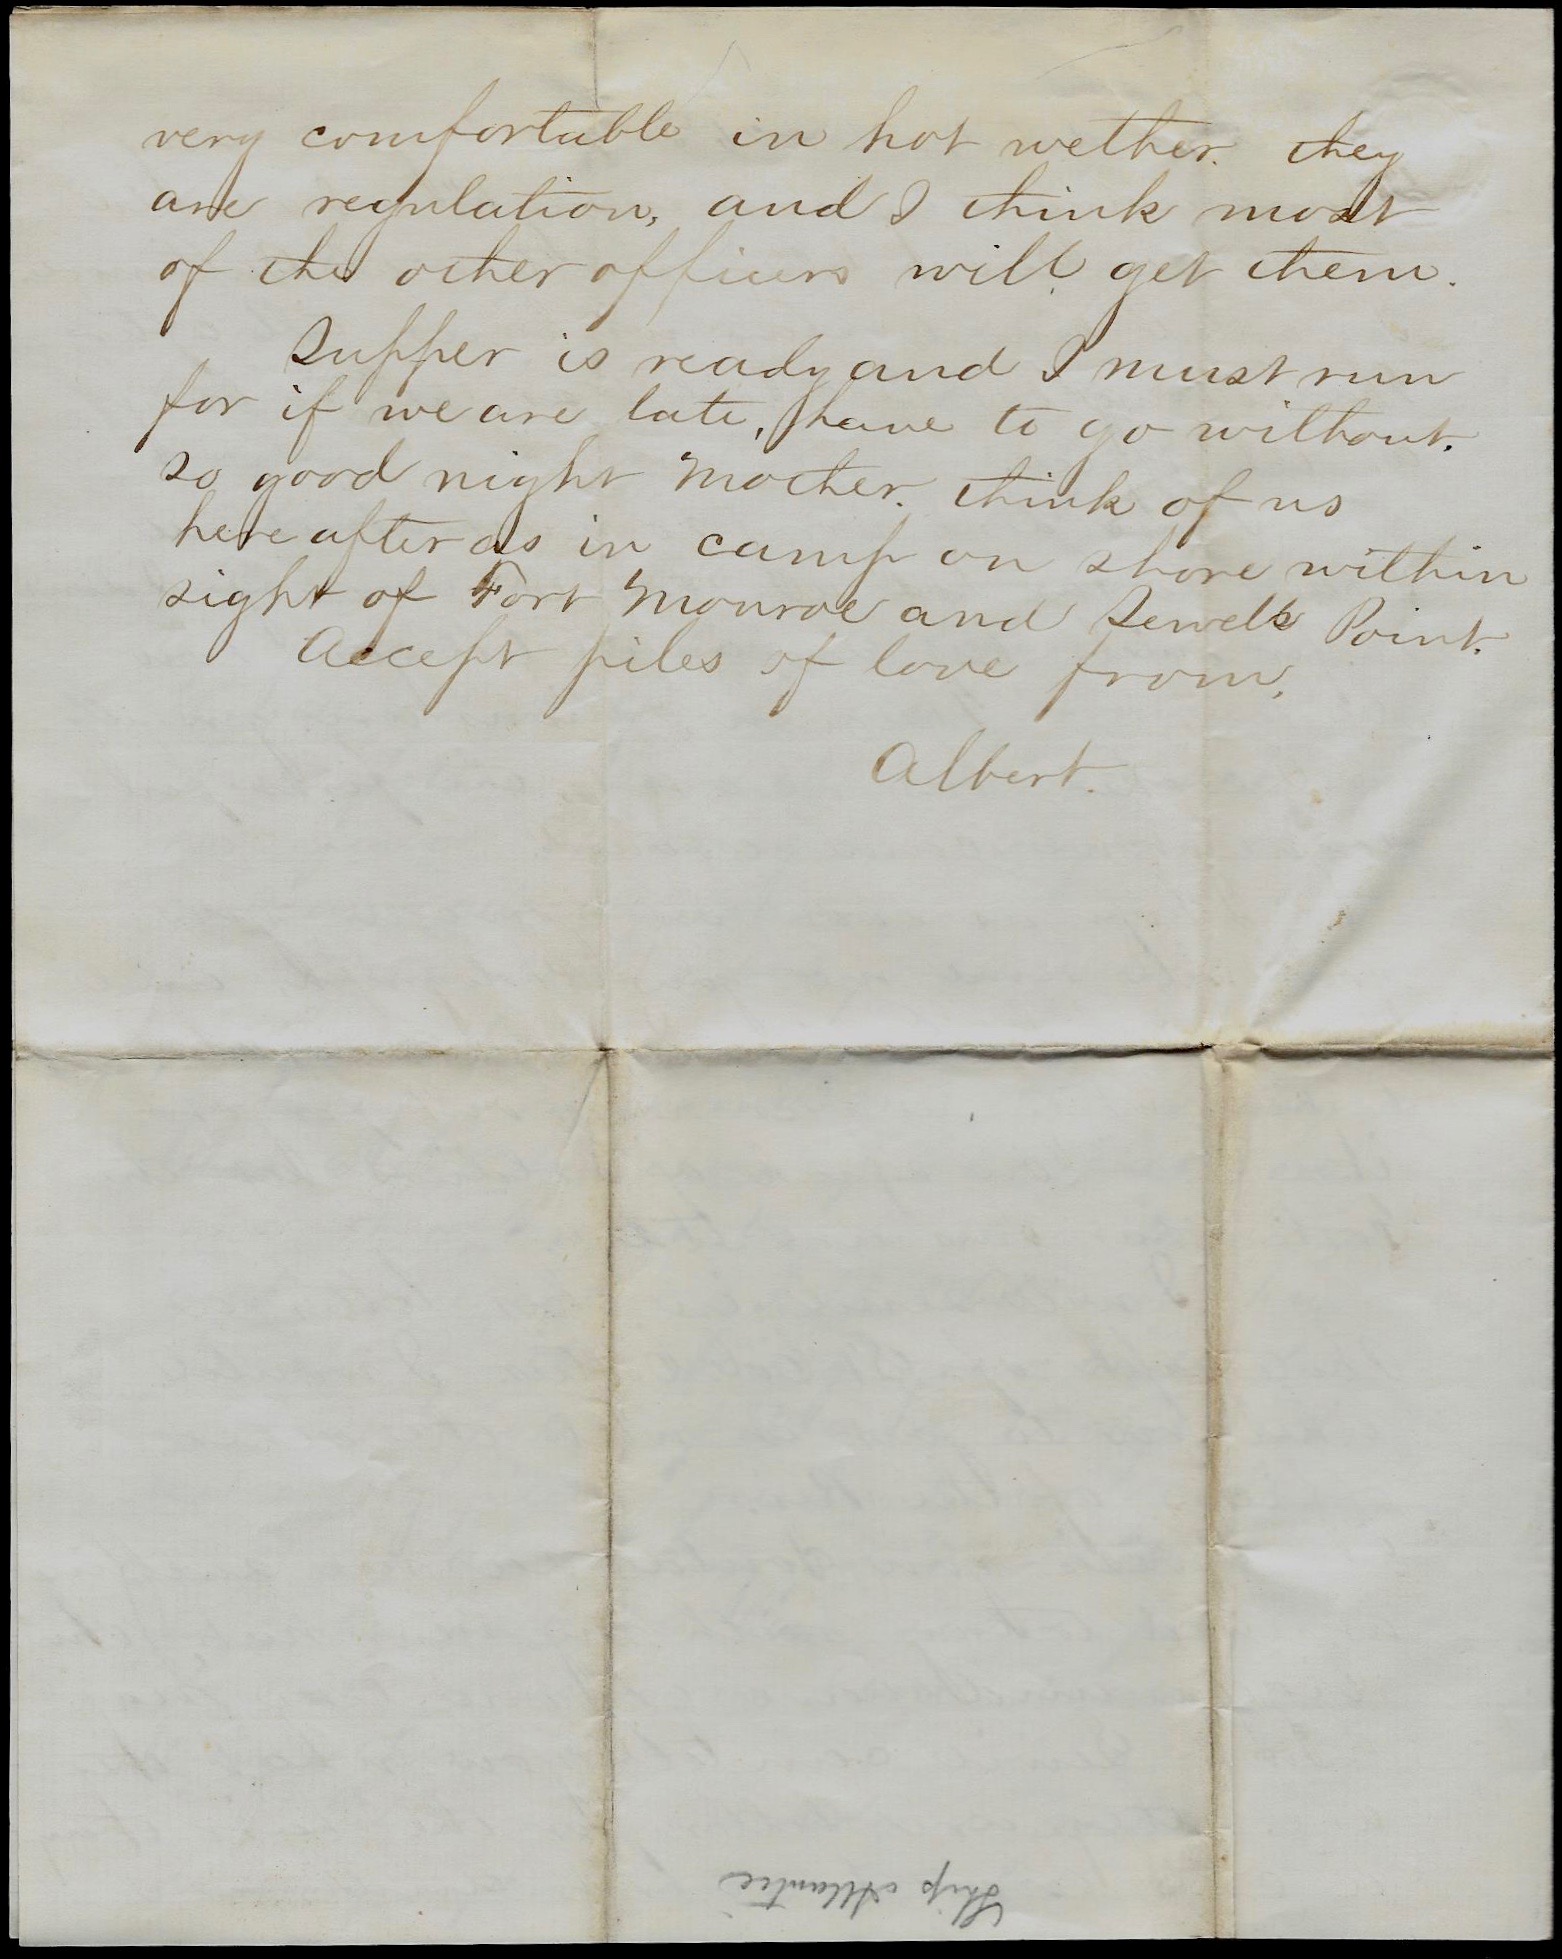 very comfortable in hot wether. they
are regulation, and I think most
of the other officers will get them.
Supper is ready and I must run
for if we are late, have to go without.
so good night Mother. think of us
here after as in camp on shore within
sight of Fort Monroe and Sewels Point.
Accept piles of love from,
Albert.
Ship Atlantic